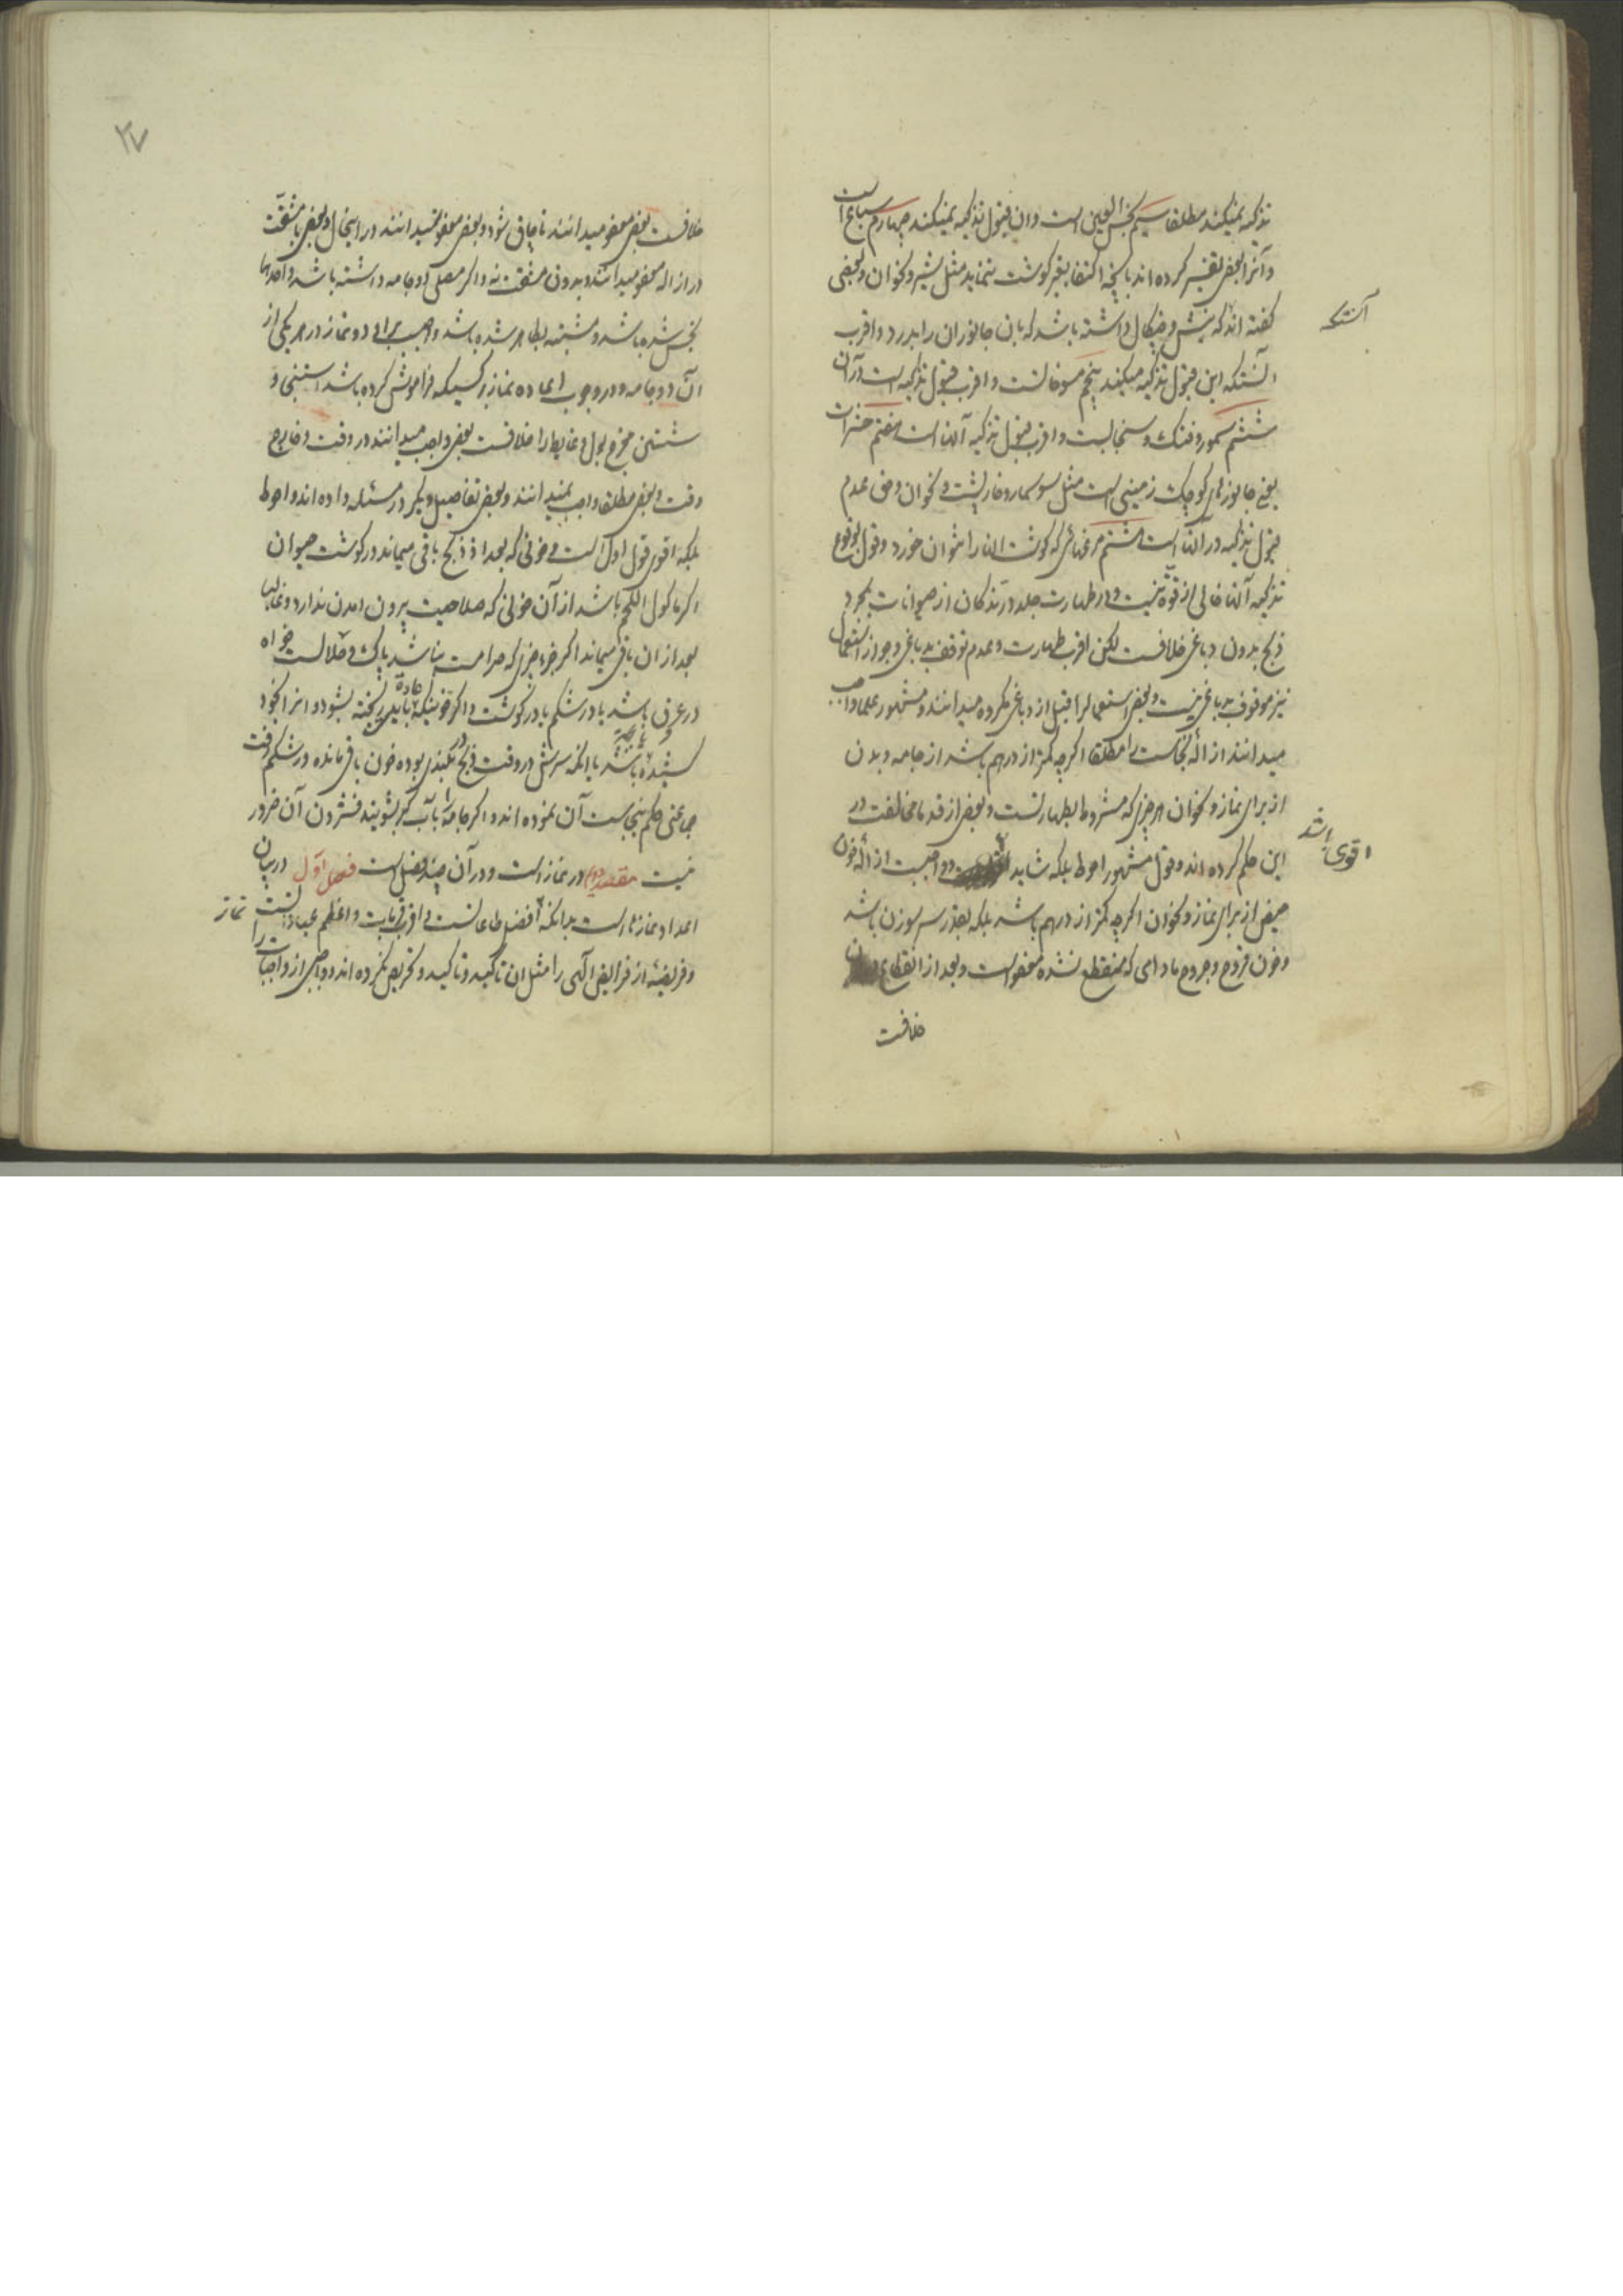 تذکیه نمیکند مطلقا سیم نجس العین است و ان قبول تذکیه نمیکند چهارم سباع است
و آنرا بعضی تفسیر کرده اند بانچه اکتفا بغیر گوشت ننماید مثل شیر و نحو ان و بعضی
گفته اند که نیش و چنکال داشته باشد که بان جانوران را بدرد و اقرب
آنستکه
انستکه این قبول تذکیه میکند پنجم مسوخاتست و اقرب قبول تذکیه است در آن
ششم سمور و فنک و سنجابست و اقرب قبول تذکیه آنها است هفتم حشرات
یعنی جانورهای کوچک زمینی است مثل سوسمار و خارپشت و نحو ان و حق عدم
قبول تذکیه در آنها است هشتم مرغهائی که گوشت انها را نتوان خورد و قول بوقوع
تذکیه آنها خالی از قوة نیست و در طهارت جلد درندکان از حیوانات بمجرد
ذبح بدون دباغی خلافست لکن اقرب طهارت و عدم توقف بدباغی و جواز استعمال
نیز موقوف بدباغی نیست و بعضی استعمالرا قبل از دباغی مکروه میدانند و مشهور علما واجب
میدانند ازاله نجاست را مطلقا اکرچه کمتر از درهم باشد از جامه و بدن
از برای نماز و نحو ان هر چیزی که مشروط بطهارتست و بعضی از قدما مخالفت در
این حکم کرده اند و قول مشهور احوط بلکه شاید و واجبست ازاله خون
اقوی باشد
حیض از برای نماز و نحو ان اکرچه کمتر از درهم باشد بلکه بقدر سر سوزن باشد
و خون قروح و جروح مادامی که منقطع نشده معفو است و بعد از انقطاع
خلافست
۲۷
خلافست بعضی معفو میدانند تا چاق شود و بعضی معفو نمیدانند در اینحال و بعضی با مشقت
در ازاله معفو میدانند و بدون مشقت نه و اکر مصلی دو جامه داشته باشد و احدیها
نجس شده باشد و مشتبه بطاهر شده باشد واجب برای دو نماز در هر یکی از
آن دو جامه و در وجوب اعاده نماز از کسیکه فراموش کرده باشد استنجی و
شستن مخرج بول و غایط را خلافست بعضی واجب میدانند در وقت و خارج
وقت و بعضی مطلقا واجب نمیدانند و بعضی تفاصیل دیکر در مسئله داده اند و احوط
بلکه اقوی قول اول است و خونی که بعد از ذبح باقی میماند در کوشت حیوان
اکر ماکول اللحم باشد از آن خونی که صلاحیت بیرون امدن ندارد و غالبا
بعد از ان باقی میماند اکر جزء چیزی که حرامست نباشد پاک و حلالست خواه
در عرق باشد یا در شکم یا در کوشت و اکر خونیکه عادة باید ریخته بشود و انرا بخود
کشیده باشد یا انکه سرش در وقت ذبح در بلندی بوده خون باقی مانده در شکم رفت
جماعتی حکم بنجاست آن نموده اند و اکر جامه را بآب کر بشویند فشردن آن ضرور
نیست مقصد دوم در نماز است و در آن چند فصل است فصل اول در بیان
اعداد نمازها است بدانکه افضل طاعاتست و اقرب قربات و اعظم عبادات
نماز
و فریضهٔ از فرایض الهی را مثل ان تاکید و تاکید و تحریص نکرده اند و واجبی از واجبات را